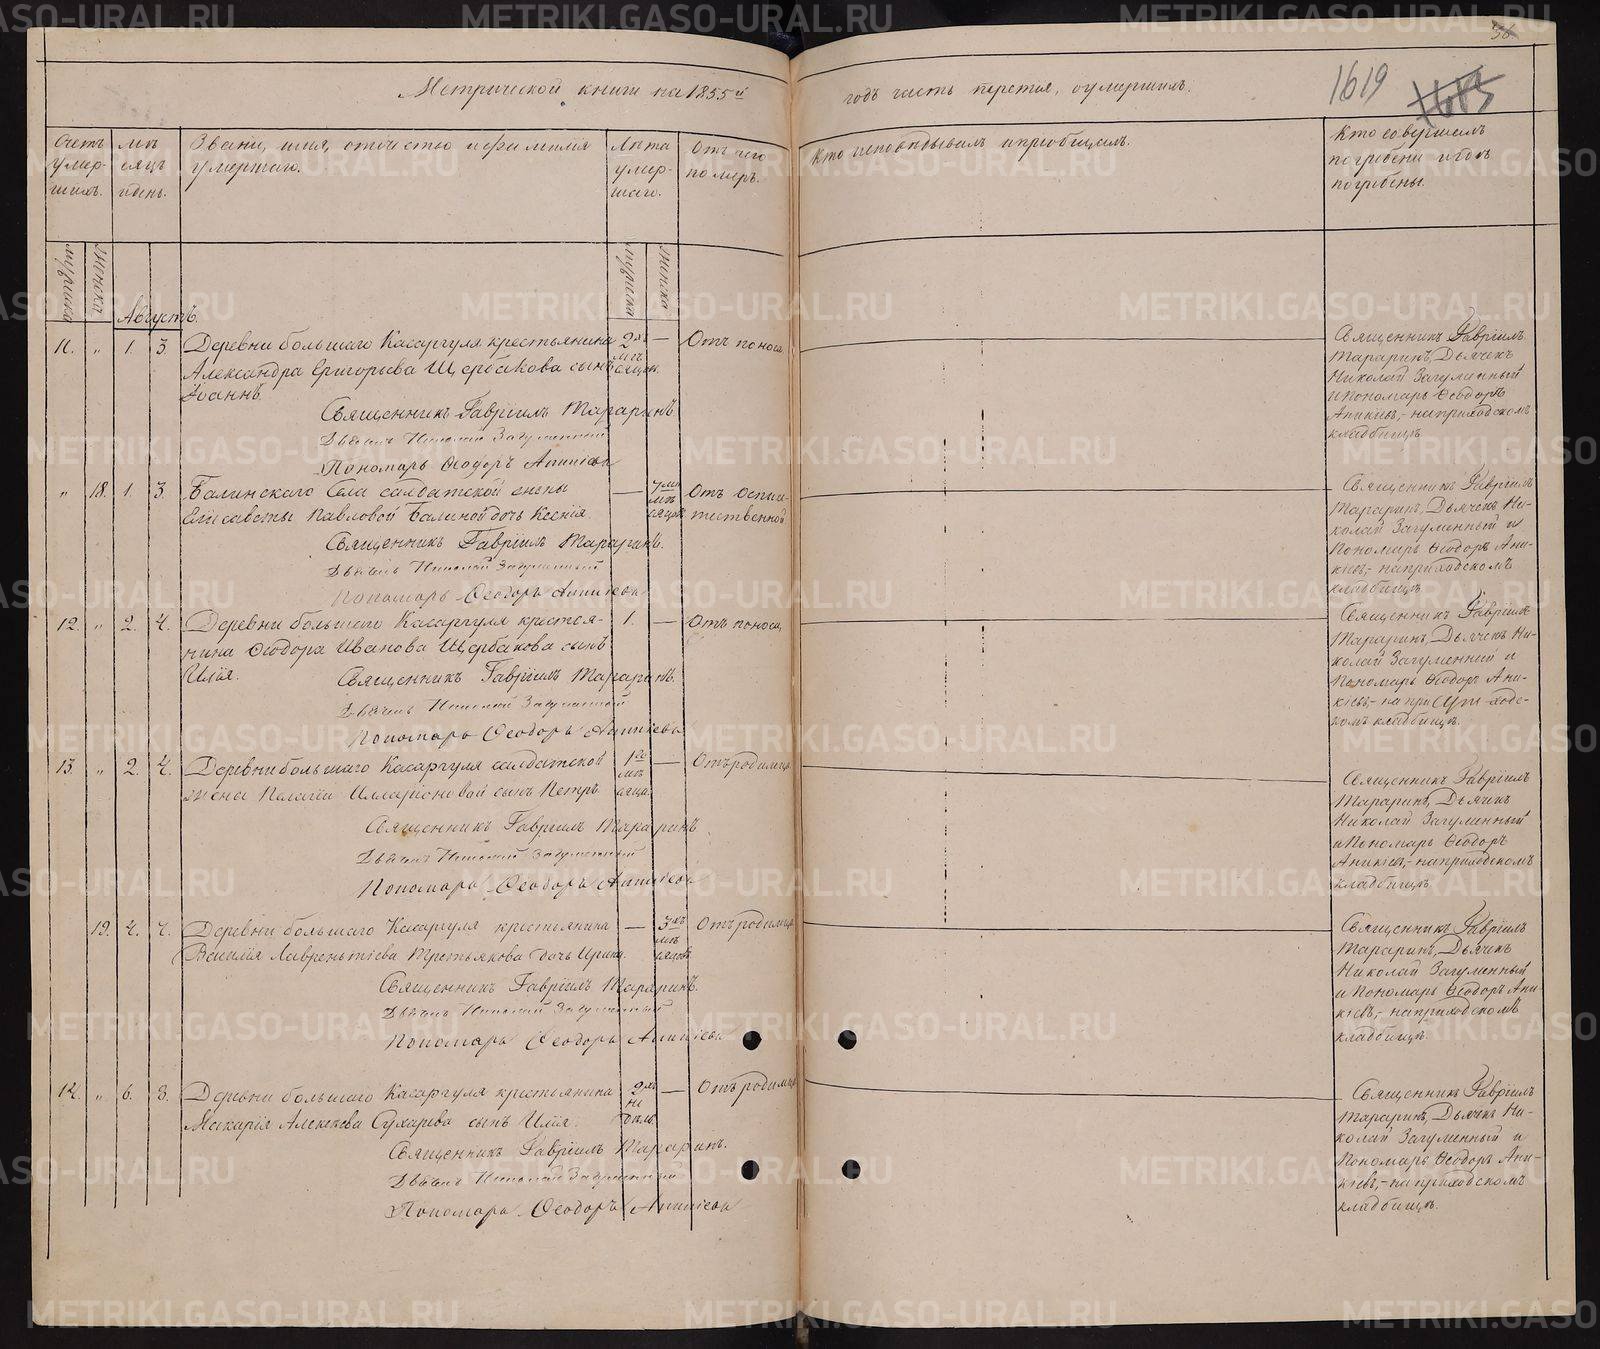 36
1619
Метрической книги на 1855й годъ часть третья, оумершихъ.
Счетъ умер-шихъ.
Мѣ-сяцъ и день.
Званіе, имя, отчество и фамилія умершаго.
Лѣта умер-шаго.
Отъ чего померъ.
Кто исповѣдывалъ и пріобщалъ.
Кто совершалъ погребеніе и гдѣ погребены.
мужска
женска
мужска
женска
Августъ.
11. „ 1. 3. Деревни большаго Касаргуля крестьянина 2хъ — Отъ поноса
Александра Григорьева Щербакова сынъ мѣсяцевъ
Іоаннъ.
Священникъ Гавріилъ Тараринъ
Дьячекъ Николай Загуменный
Пономарь Ѳеодоръ Аникіевъ
Священникъ Гавріилъ
Тараринъ, Дьячекъ
Николай Загуменный
и Пономарь Ѳеодоръ
Аникіевъ,- на приходскомъ
кладбищѣ.
„ 18. 1. 3. Балинскаго Села салдатской жены — 7ми Отъ Оспы е-
Елисаветы Павловой Балиной дочь Ксенія. мѣсяцевъ тественной
Священникъ Гавріилъ Тараринъ.
Дьячекъ Николай Загуменный
Пономарь Ѳеодоръ Аникіевъ
Священникъ Гавріилъ
Тараринъ, Дьячекъ Ни-
колай Загуменный и
Пономарь Ѳеодоръ Ани-
кіевъ,- на приходскомъ
кладбищѣ.
12. „ 2. 4. Деревни большаго Касаргуля крестья- 1. — Отъ поноса,
нина Ѳеодора Иванова Щербакова сынъ
Илія.
Священникъ Гавріилъ Тараринъ.
Дьячекъ Николай Загуменный
Пономарь Ѳеодоръ Аникіевъ
Священникъ Гавріилъ
Тараринъ, Дьячекъ Ни-
колай Загуменний и
Пономарь Ѳеодоръ Ани-
кіевъ,- на при ходс-
комъ кладбищѣ.
13. „ 2. 4. Деревни большаго Касаргуля салдатской 1го — Отъ родимца
жены Пелагіи Илларіоновой сынъ Петръ мѣсяца.
Священникъ Гавріилъ Тараринъ
Дьячекъ Николай Загуменный
Пономарь Ѳеодоръ Аникіевъ
Священникъ Гавріилъ
Тараринъ, Дьячекъ
Николай Загуменный
и Пономарь Ѳеодоръ
Аникіевъ,- на приходскомъ
кладбищѣ
19. 4. 7. Деревни большаго Касаргуля крестьянина — 3хъ Отъ родимца
Василія Лаврентіева Третьякова дочь Ирина. мѣсяцевъ
Священникъ Гавріилъ Тараринъ.
Дьячекъ Николай Загуменный
Пономарь Ѳеодоръ Аникіевъ
Священникъ Гавріилъ
Тараринъ, Дьячекъ
Николай Загуменный,
и Пономарь Ѳеодоръ Ани-
кіевъ,- на приходскомъ
кладбищѣ.
14. „ 6. 8. Деревни большаго Касаргуля крестьянина 2хъ — Отъ родимца
Макарія Алексѣева Сухарева сынъ Илія. недѣль.
Священникъ Гавріилъ Тараринъ.
Дьячекъ Николай Загуменный
Пономарь Ѳеодоръ Аникіевъ
Священникъ Гавріилъ
Тараринъ, Дьячекъ Ни-
колай Загуменный и
Пономарь Ѳеодоръ Ани-
кіевъ,- на приходскомъ
кладбищѣ.
METRIKI.GASO-URAL.RU